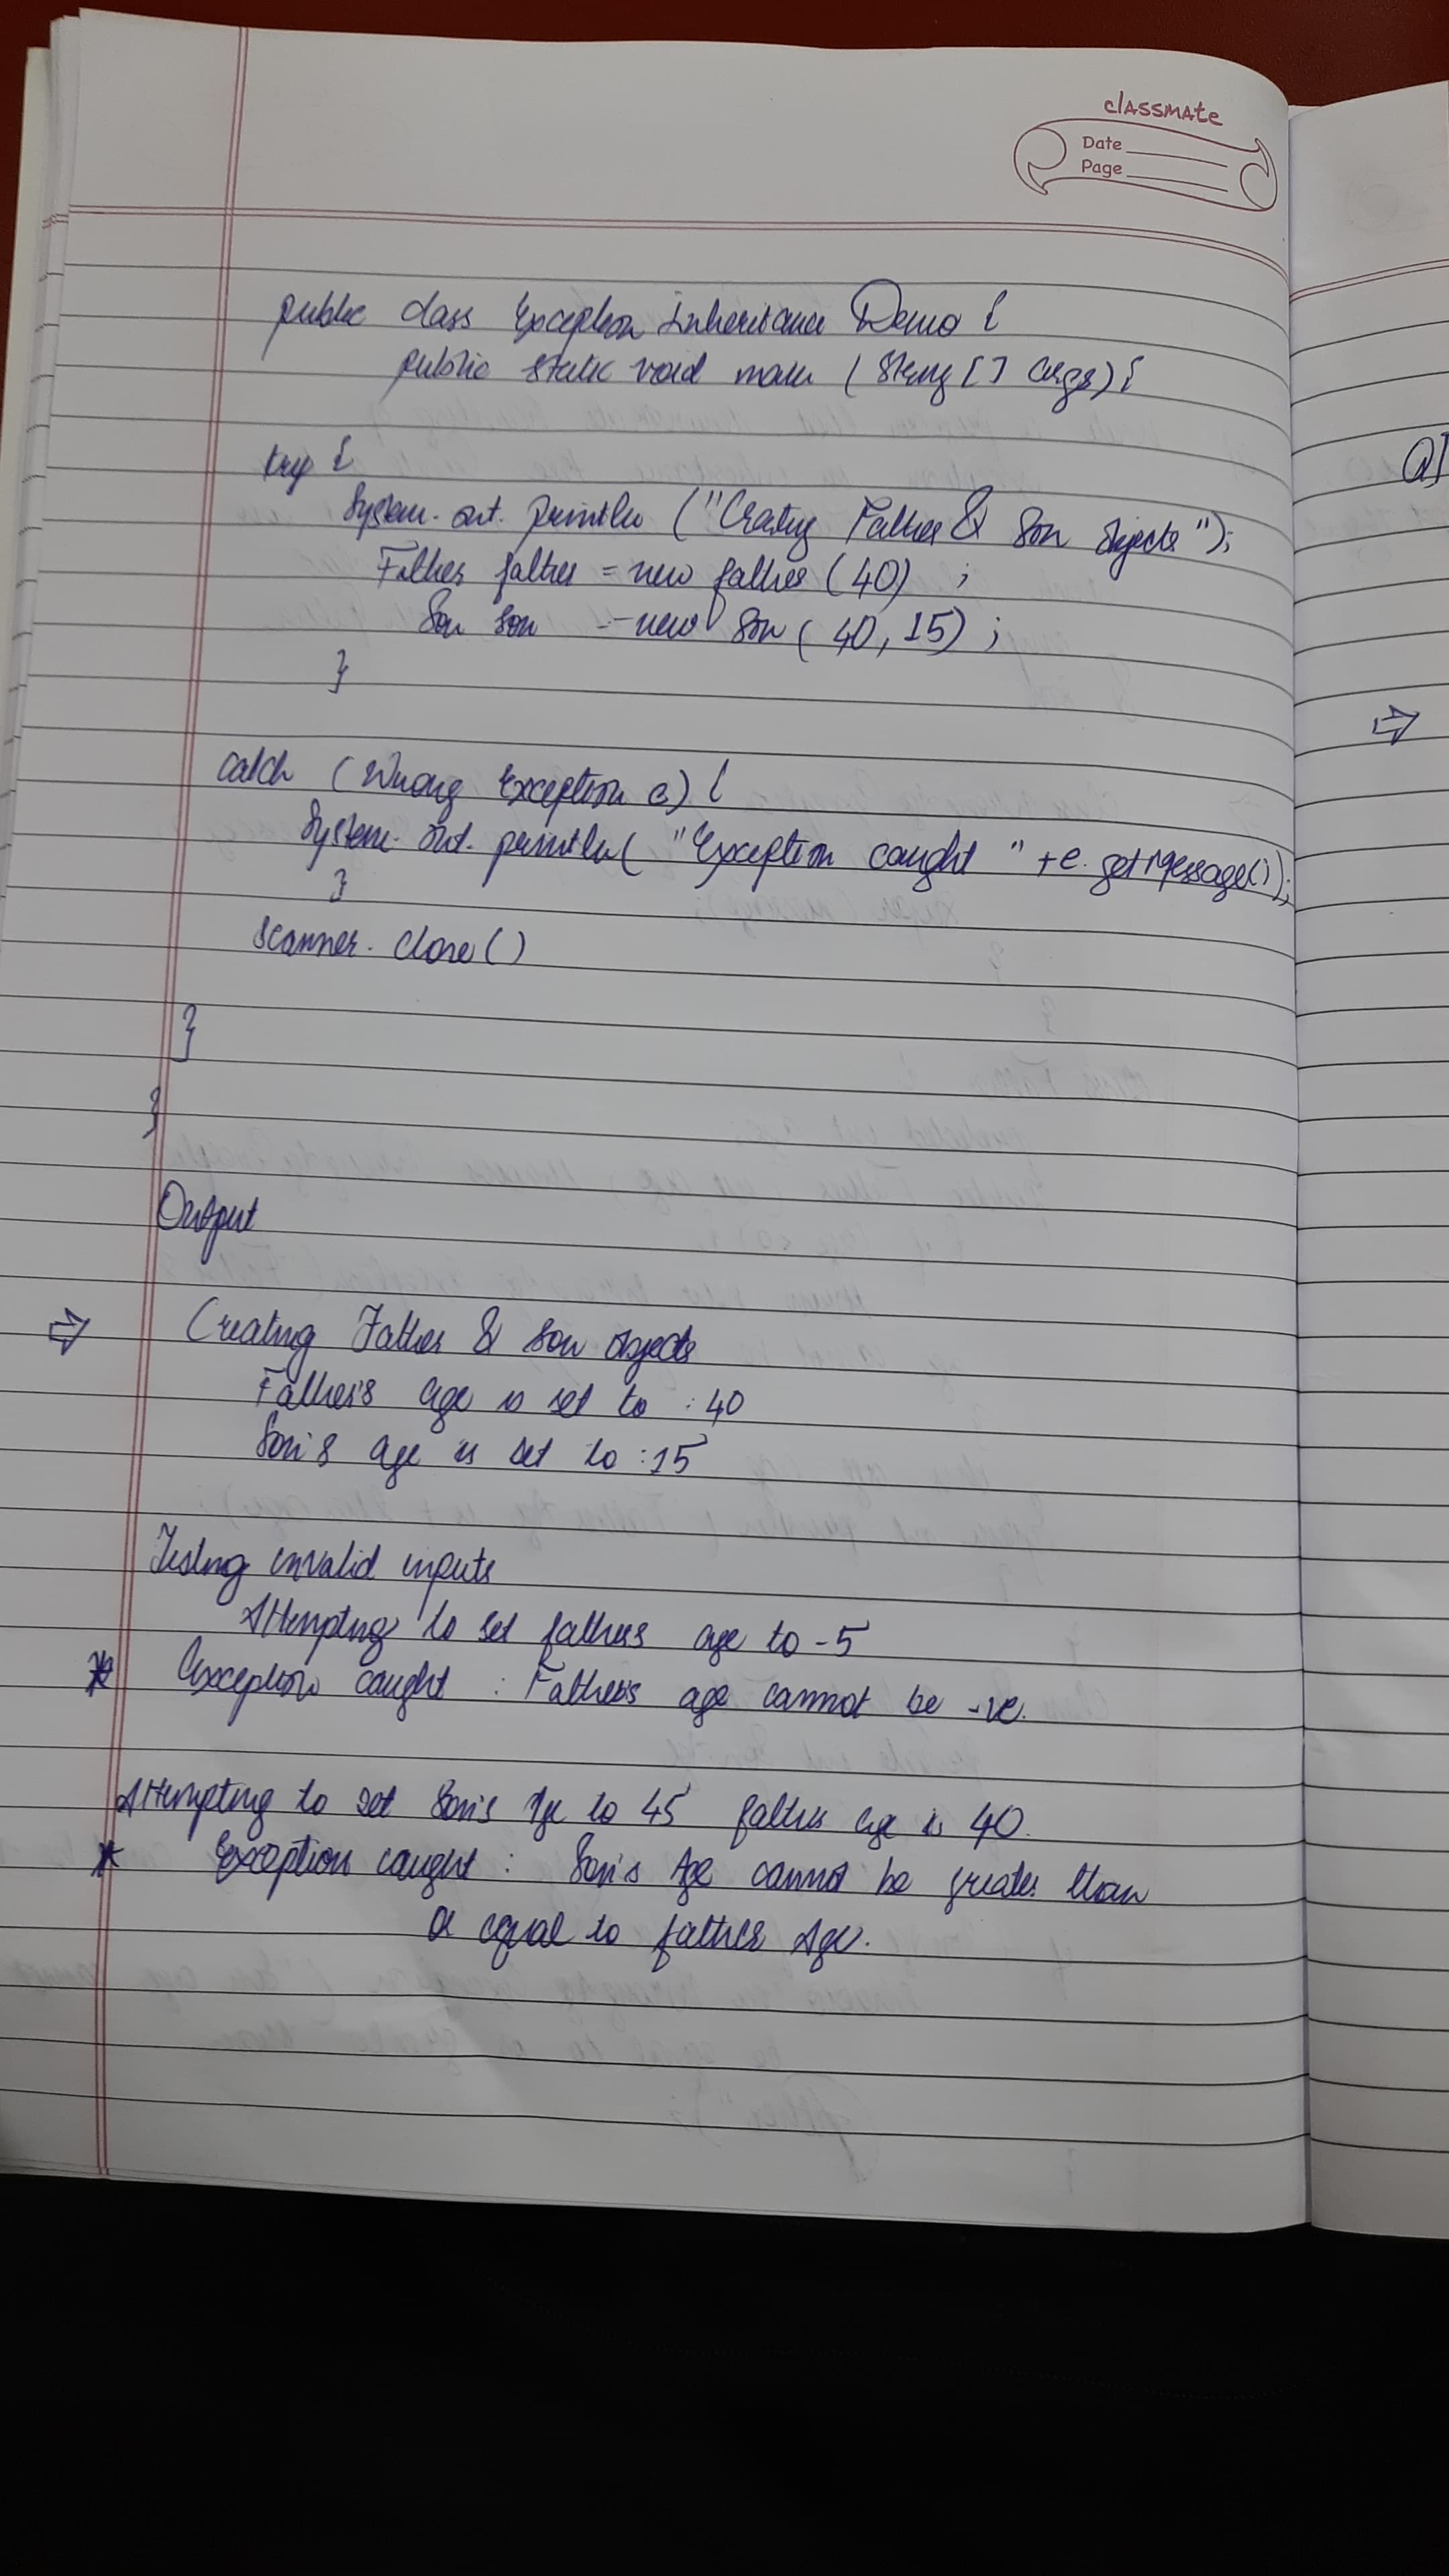 classmate
Date
Page
public class Exception Inheritance Demo {
public static void main (String [ ] args) {
try {
System. out. println ("Crating Father & Son Objects");
Father father = new father (40) ;
Son son = new Son ( 40, 15) ;
}
catch (Wrong Exception e) {
System. out. println( "Exception caught " + e. getMessage());
}
scanner. close ( )
}
}
Output
⇒ Creating Father & Son Objects
Father's age is set to : 40
Son's age is set to : 15
Testing invalid inputs
Attempting to set fathers age to -5
* Exception caught : Father's age cannot be -ve.
Attempting to set Son's Age to 45 father age is 40.
* Exception caught : Son's Age cannot be greater than
or equal to father Age.
Q]
⇒